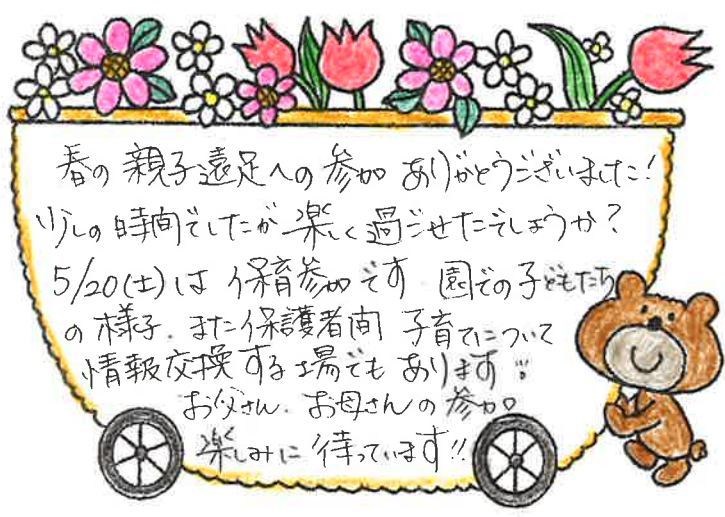 春の親子遠足への参加 ありがとうございました!
少しの時間でしたが 楽しく過ごせたでしょうか?
5/20(土)は 保育参加です 園での子どもたち
の様子、また保護者間 子育てについて
情報交換する場でもあります!!
お父さん、お母さんの参加
楽しみに待っています!!